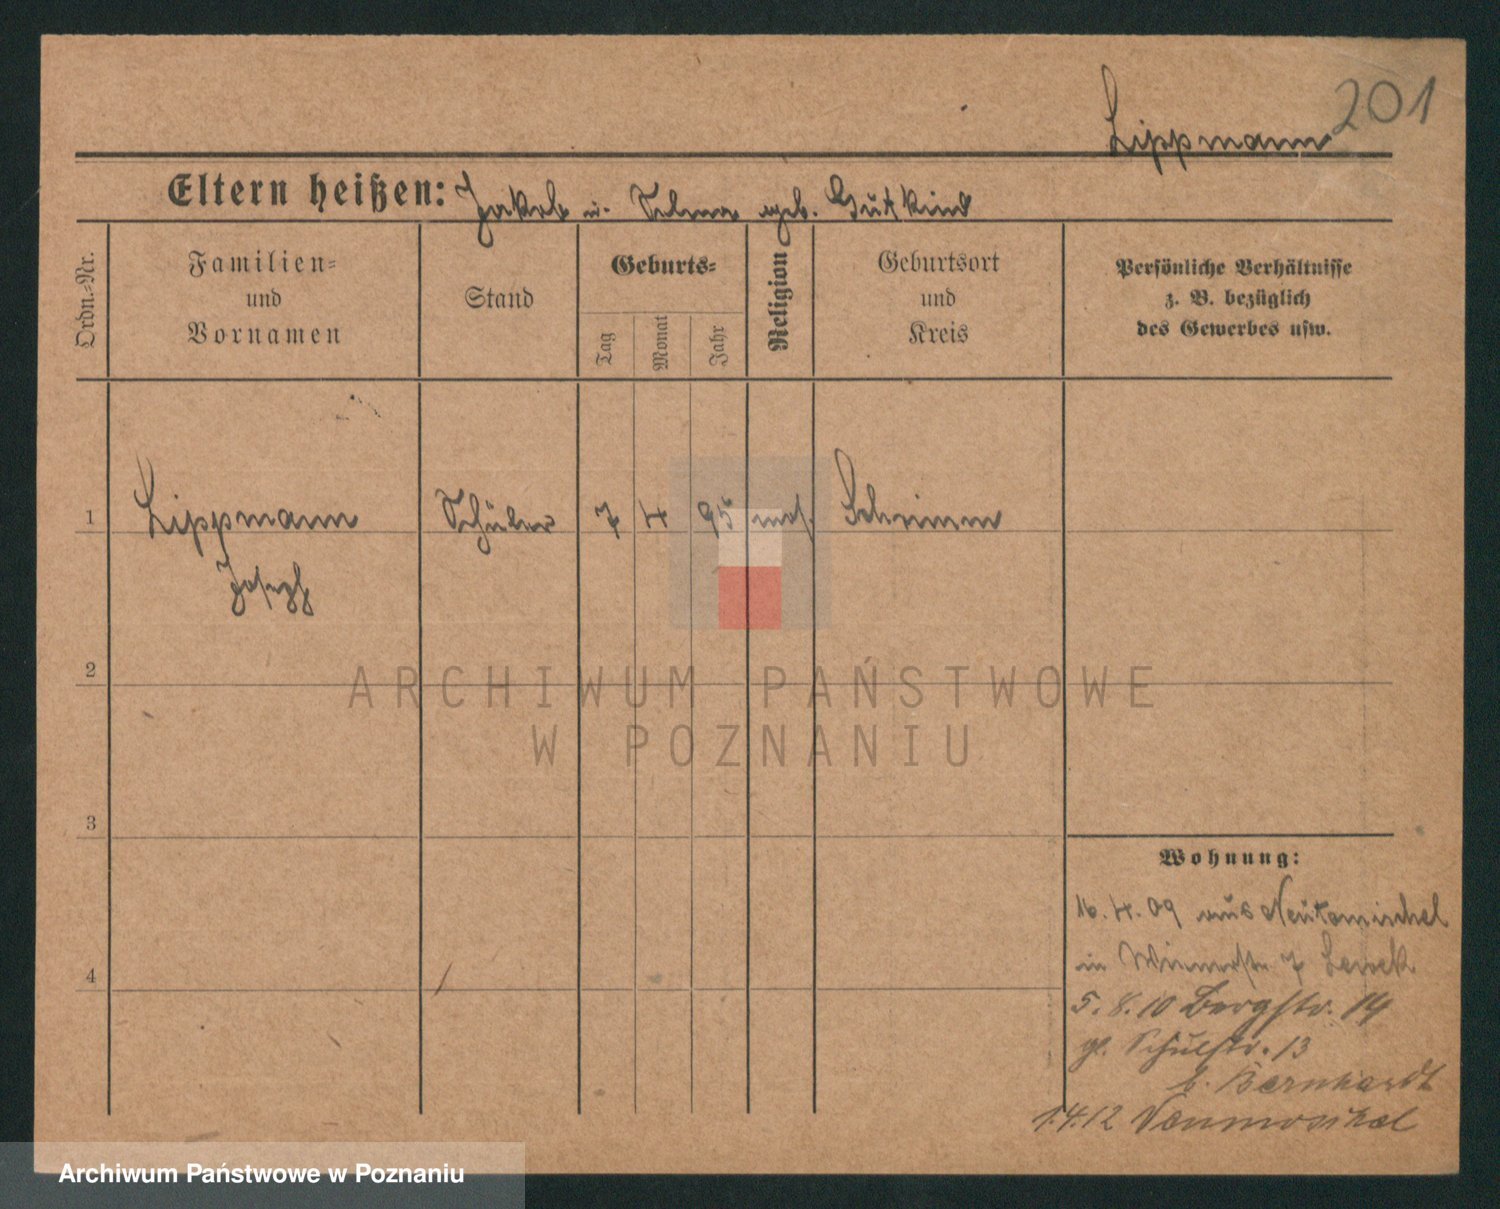 201
Lippmann
Eltern heißen: Jakob u. Selma geb. Gutkind
Ordn.-Nr.
Familien- und Vornamen
Stand
Geburts-
Tag
Monat
Jahr
Religion
Geburtsort und Kreis
Persönliche Verhältnisse
z. B. bezüglich
des Gewerbes usw.
1 Lippmann Schüler 7 4 95 mos. Schrimm
Joseph
2
ARCHIWUM PAŃSTWOWE
W POZNANIU
3
Wohnung:
16.4.09 aus Neutomischel
in 7
4
5.8.10 Bergstr. 14
gl. Schulstr. 13
b. Bernhardt
1.4.12
Archiwum Państwowe w Poznaniu